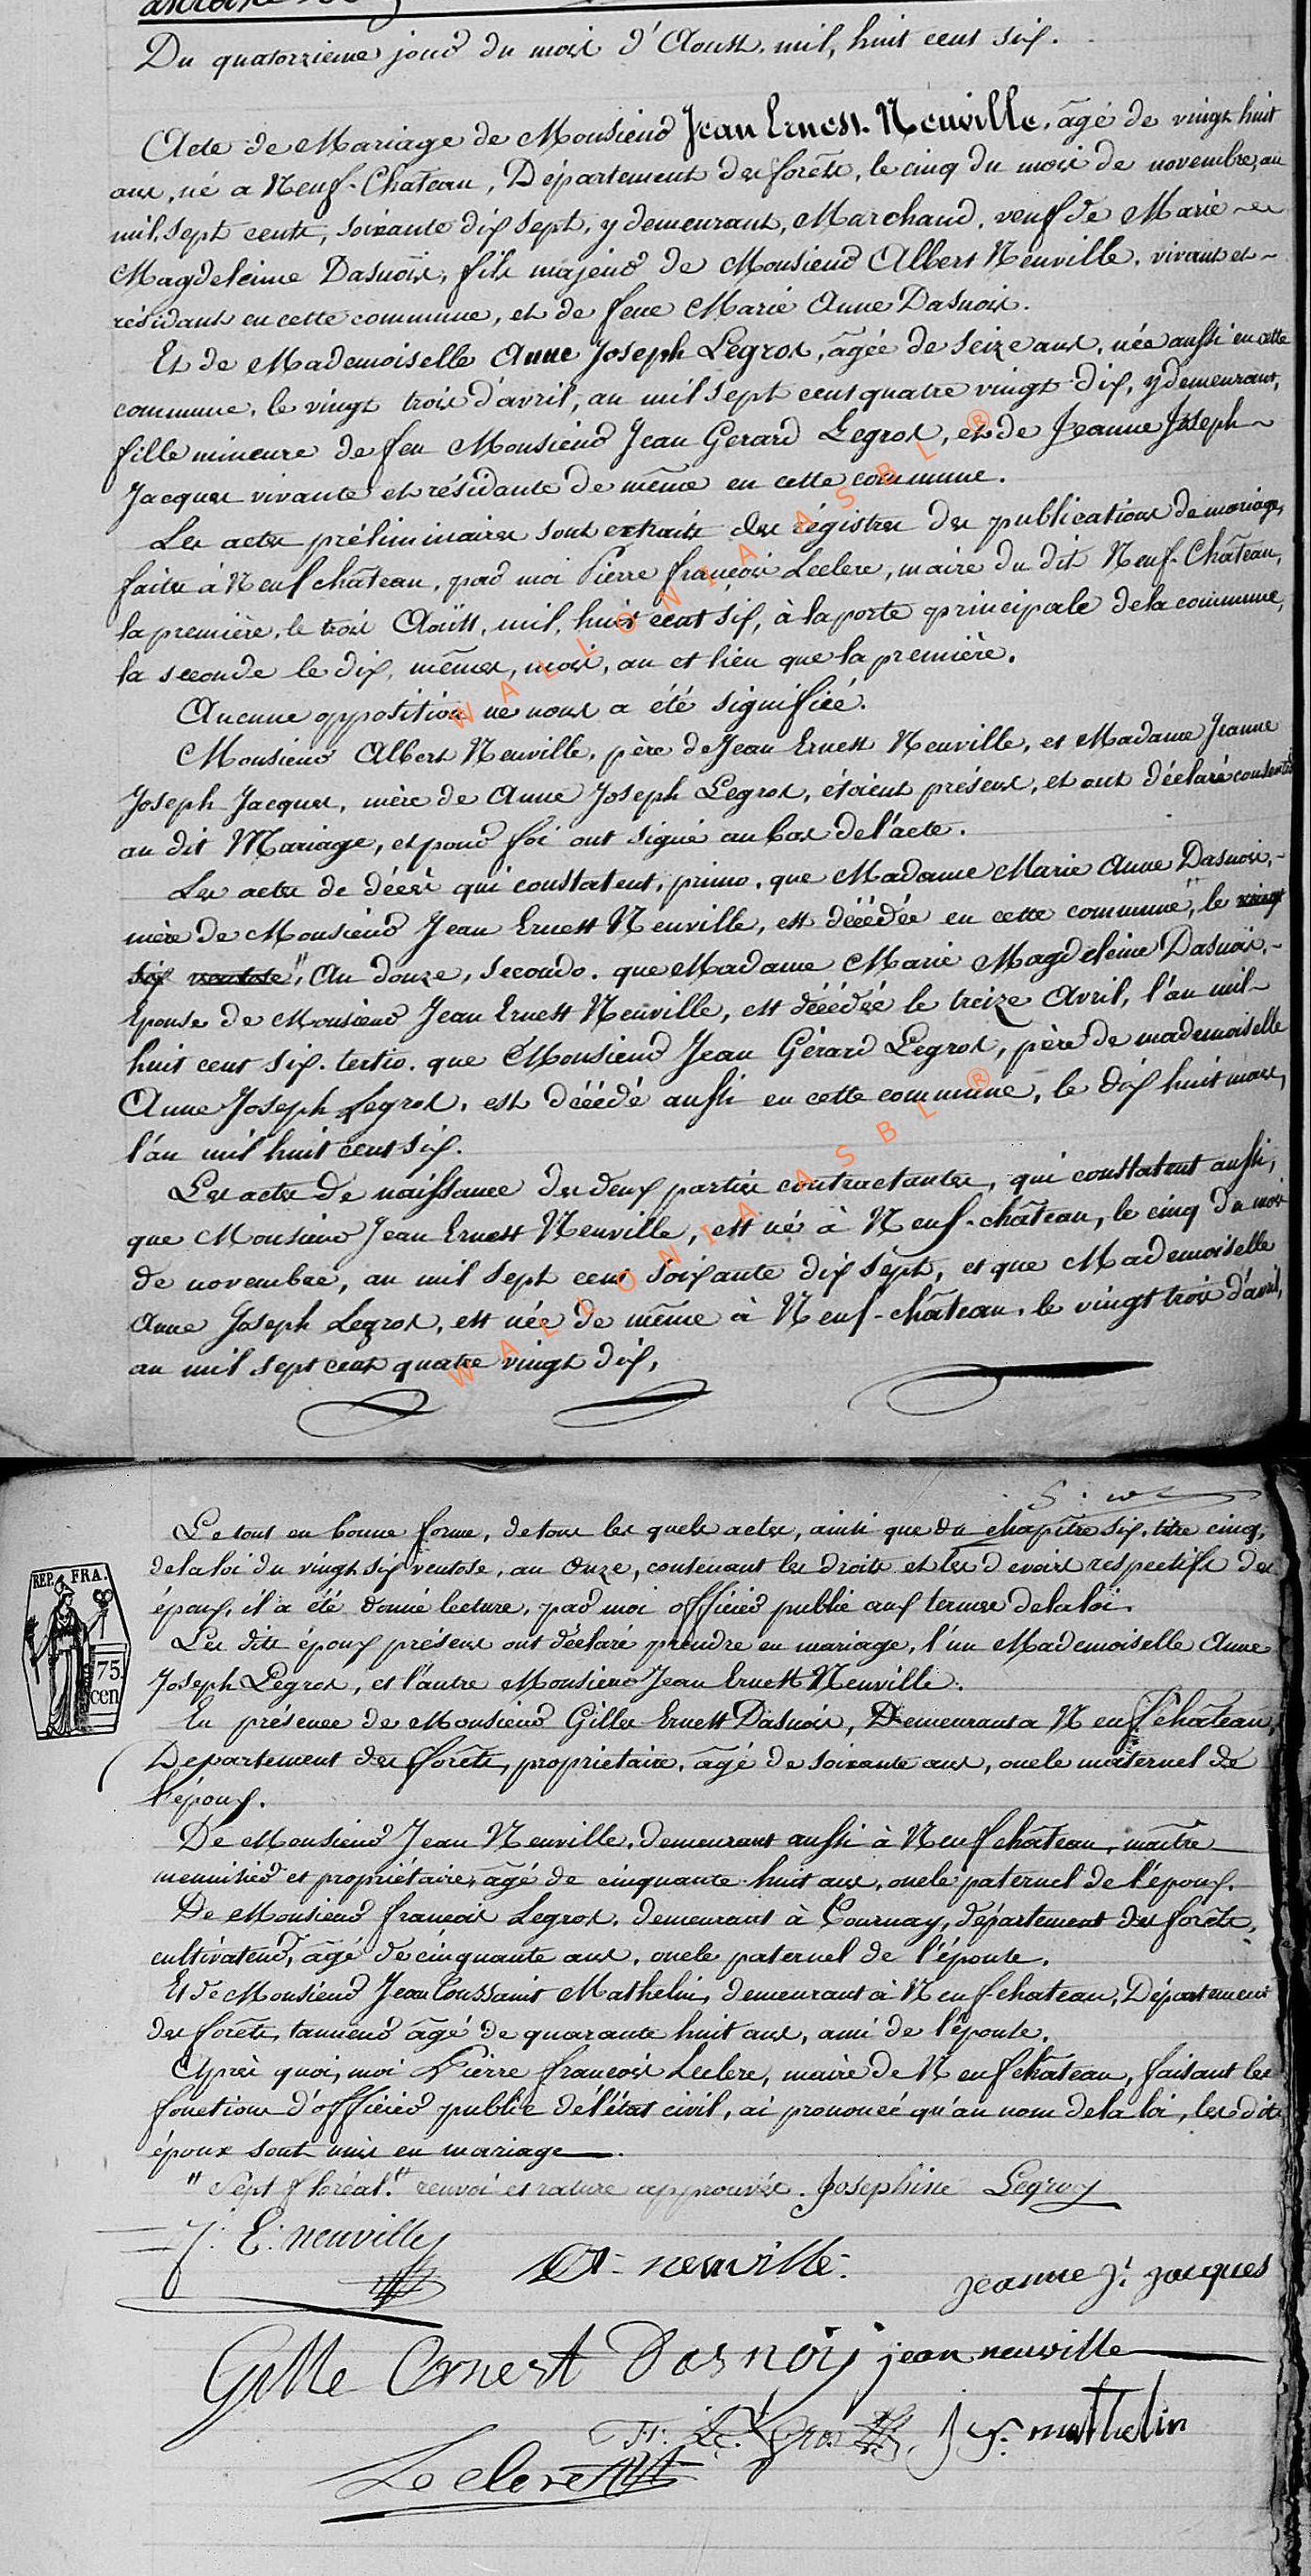 Du quatorzieme jour du mois d'Aoust, mil, huit cent six.
Acte de Mariage de Monsieur Jean Ernest. Neuville, âgé de vingt huit
ans, né a Neuf-Chateau, Département des forêts, le cinq du mois de novembre, an
mil, sept cents, soixante dix sept, y demeurant, Marchand, veuf de Marie
Magdeleinne Dasnois, fils majeur de Monsieur Albert Neuville, vivant et
résidant en cette commune, et de feue Marie Anne Dasnois.
Et de Mademoiselle Anne Joseph Legros, âgée de seize ans, née aussi en cette
commune, le vingt trois d'avril, an mil sept cent quatre vingt dix, y demeurant,
fille mineure de feu Monsieur Jean Gerard Legros, et de Jeanne Joseph
Jacques vivante et résidante de même en cette commune.
Les actes préliminaires sont extraits des régistres des publications de mariage,
faites à Neufchâteau, par moi Pierre françois Leclere, maire du dit Neuf-Château,
la première, le trois Aoüst, mil, huit cent six, à la porte principale de la commune,
la seconde le dix, mêmes, mois, an et lieu que la première.
Aucune opposition ne nous a été signifiée.
Monsieur Albert Neuville, père de Jean Ernest Neuville, et Madame Jeanne
Joseph Jacques, mère de Anne Joseph Legros, étoient présens, et ont déclaré consentir
au dit Mariage, et pour foi ont signé au bas de l'acte.
Les actes de décès qui constatent, primo, que Madame Marie Anne Dasnois,
mère de Monsieur Jean Ernest Neuville, est décédée en cette commune, le vingt
six ventose," An douze, secondo. que Madame Marie Magdeleine Dasnois,
Epouse de Monsieur Jean Ernest Neuville, est décédée le treize Avril, l'an mil
huit cent six. tertio. que Monsieur Jean Gérard Legros, père de mademoiselle
Anne Joseph Legros, est décédé aussi en cette commune, le dix huit mars,
l'an mil huit cent six.
Les actes de naissance des deux parties contractantes, qui constatent aussi,
que Monsieur Jean Ernest Neuville, est né à Neuf-château, le cinq du mois
de novembre, an mil sept cent soixante dix sept, et que Mademoiselle
Anne Joseph Legros, est née de même à Neuf-château, le vingt trois d'avril,
an mil sept cent quatre vingt dix,
WALLONIA ASBL ®
WALLONIA ASBL ®
Le tout en bonne forme, de tous les quels actes, ainsi que du chapitre six, titre cinq,
de la loi du vingt six ventose, an onze, contenant les droits et les devoirs respectifs des
époux, il a été donné lecture, par moi officier public aux termes de la loi.
Les dits époux présens ont déclaré prendre en mariage, l'un Mademoiselle Anne
Joseph Legros, et l'autre Monsieur Jean Ernest Neuville.
En présence de Monsieur Gilles Ernest Dasnois, Demeurant a Neufchâteau,
Département des forêts, propriétaire, âgé de soixante ans, oncle maternel de
l'époux.
De Monsieur Jean Neuville, demeurant aussi à Neufchâteau, maître
menuisier et propriétaire, âgé de cinquante huit ans, oncle paternel de l'époux.
De Monsieur françois Legros, demeurant à Tournay, département des forêts,
cultivateur, âgé de cinquante ans, oncle paternel de l'épouse.
Et de Monsieur Jean Toussaint Mathelin, demeurant à Neufchateau, Département
des forêts, tanneur âgé de quarante huit ans, ami de l'épouse.
Après quoi, moi Pierre françois Leclere, maire de Neufchâteau, faisant les
fonctions d'officier public de l'état civil, ai prononcé qu'au nom de la loi, les dits
époux sont unis en mariage.
"Sept floréal." renvoi et rature approuvés. Josephine Legros
J: E: neuville
REP. FRA.
75
cen
A neuville
jeanne j: jacques
Gille Ernest Dasnoij jean neuville
Fr: Le Gros J T: mathelin
Leclere